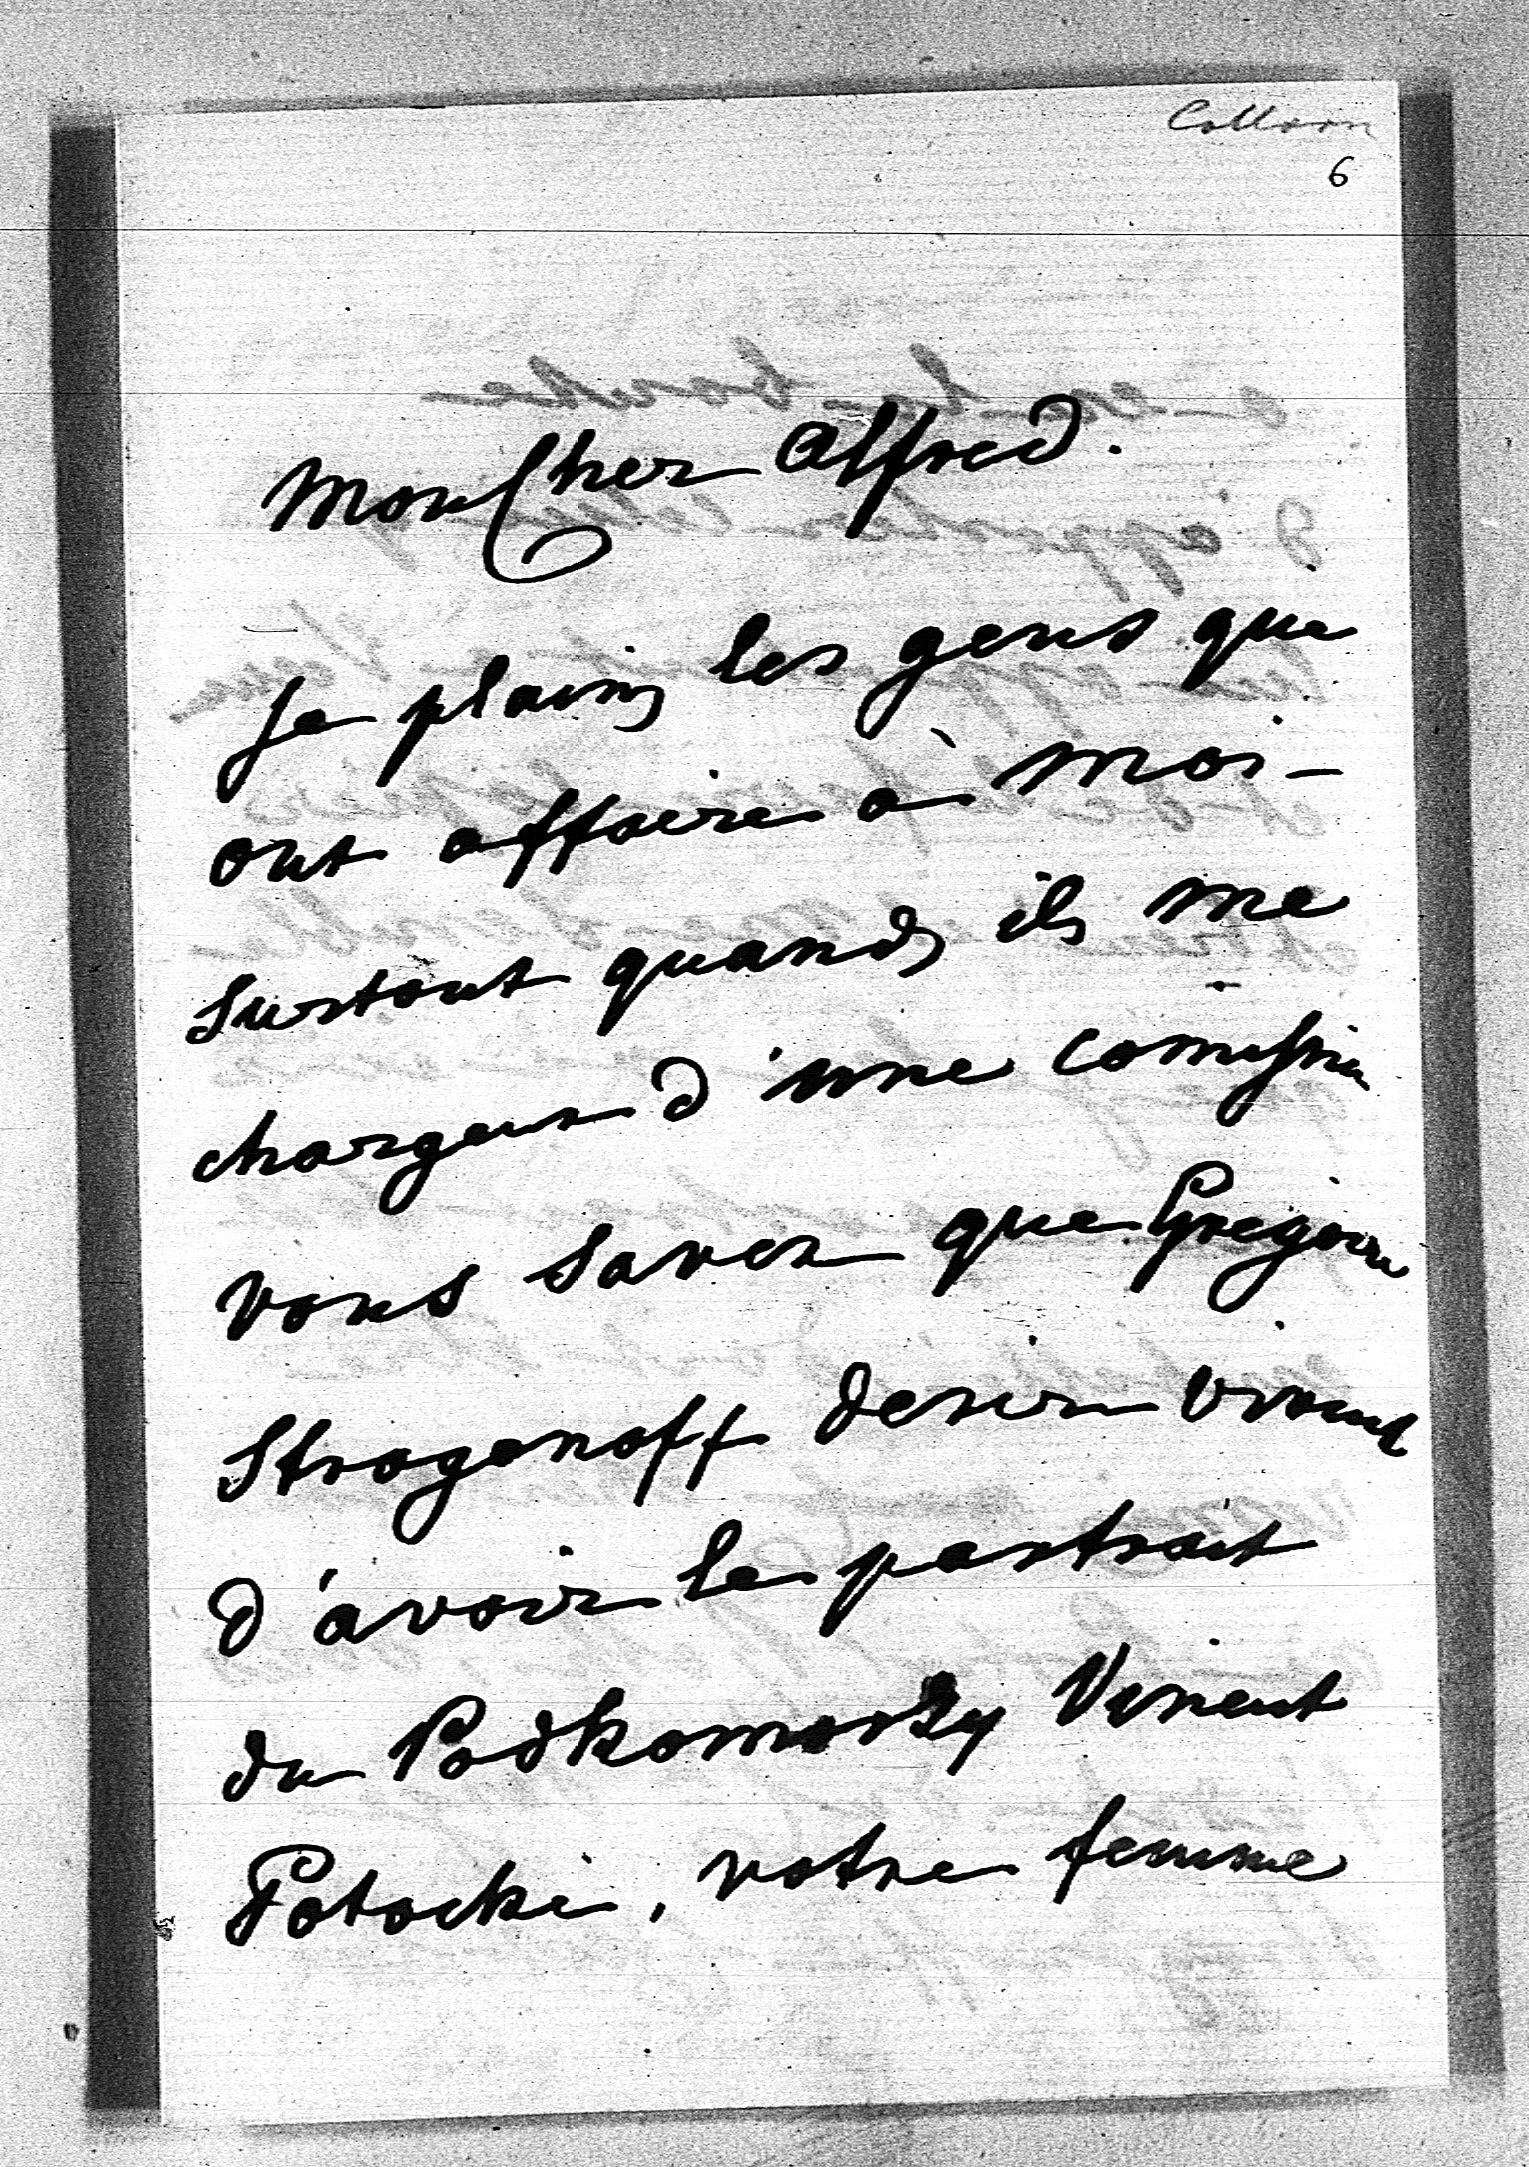 6
Mon Cher Alfred.
Je plains les gens qui
ont affaire à moi –
surtout quands ils me
chargent d'une comission
vous saver que Gregoire
Stroganoff desire vivement
d'avoir le portrait
du Podkomorzy Vincent
Potocki, votre femme